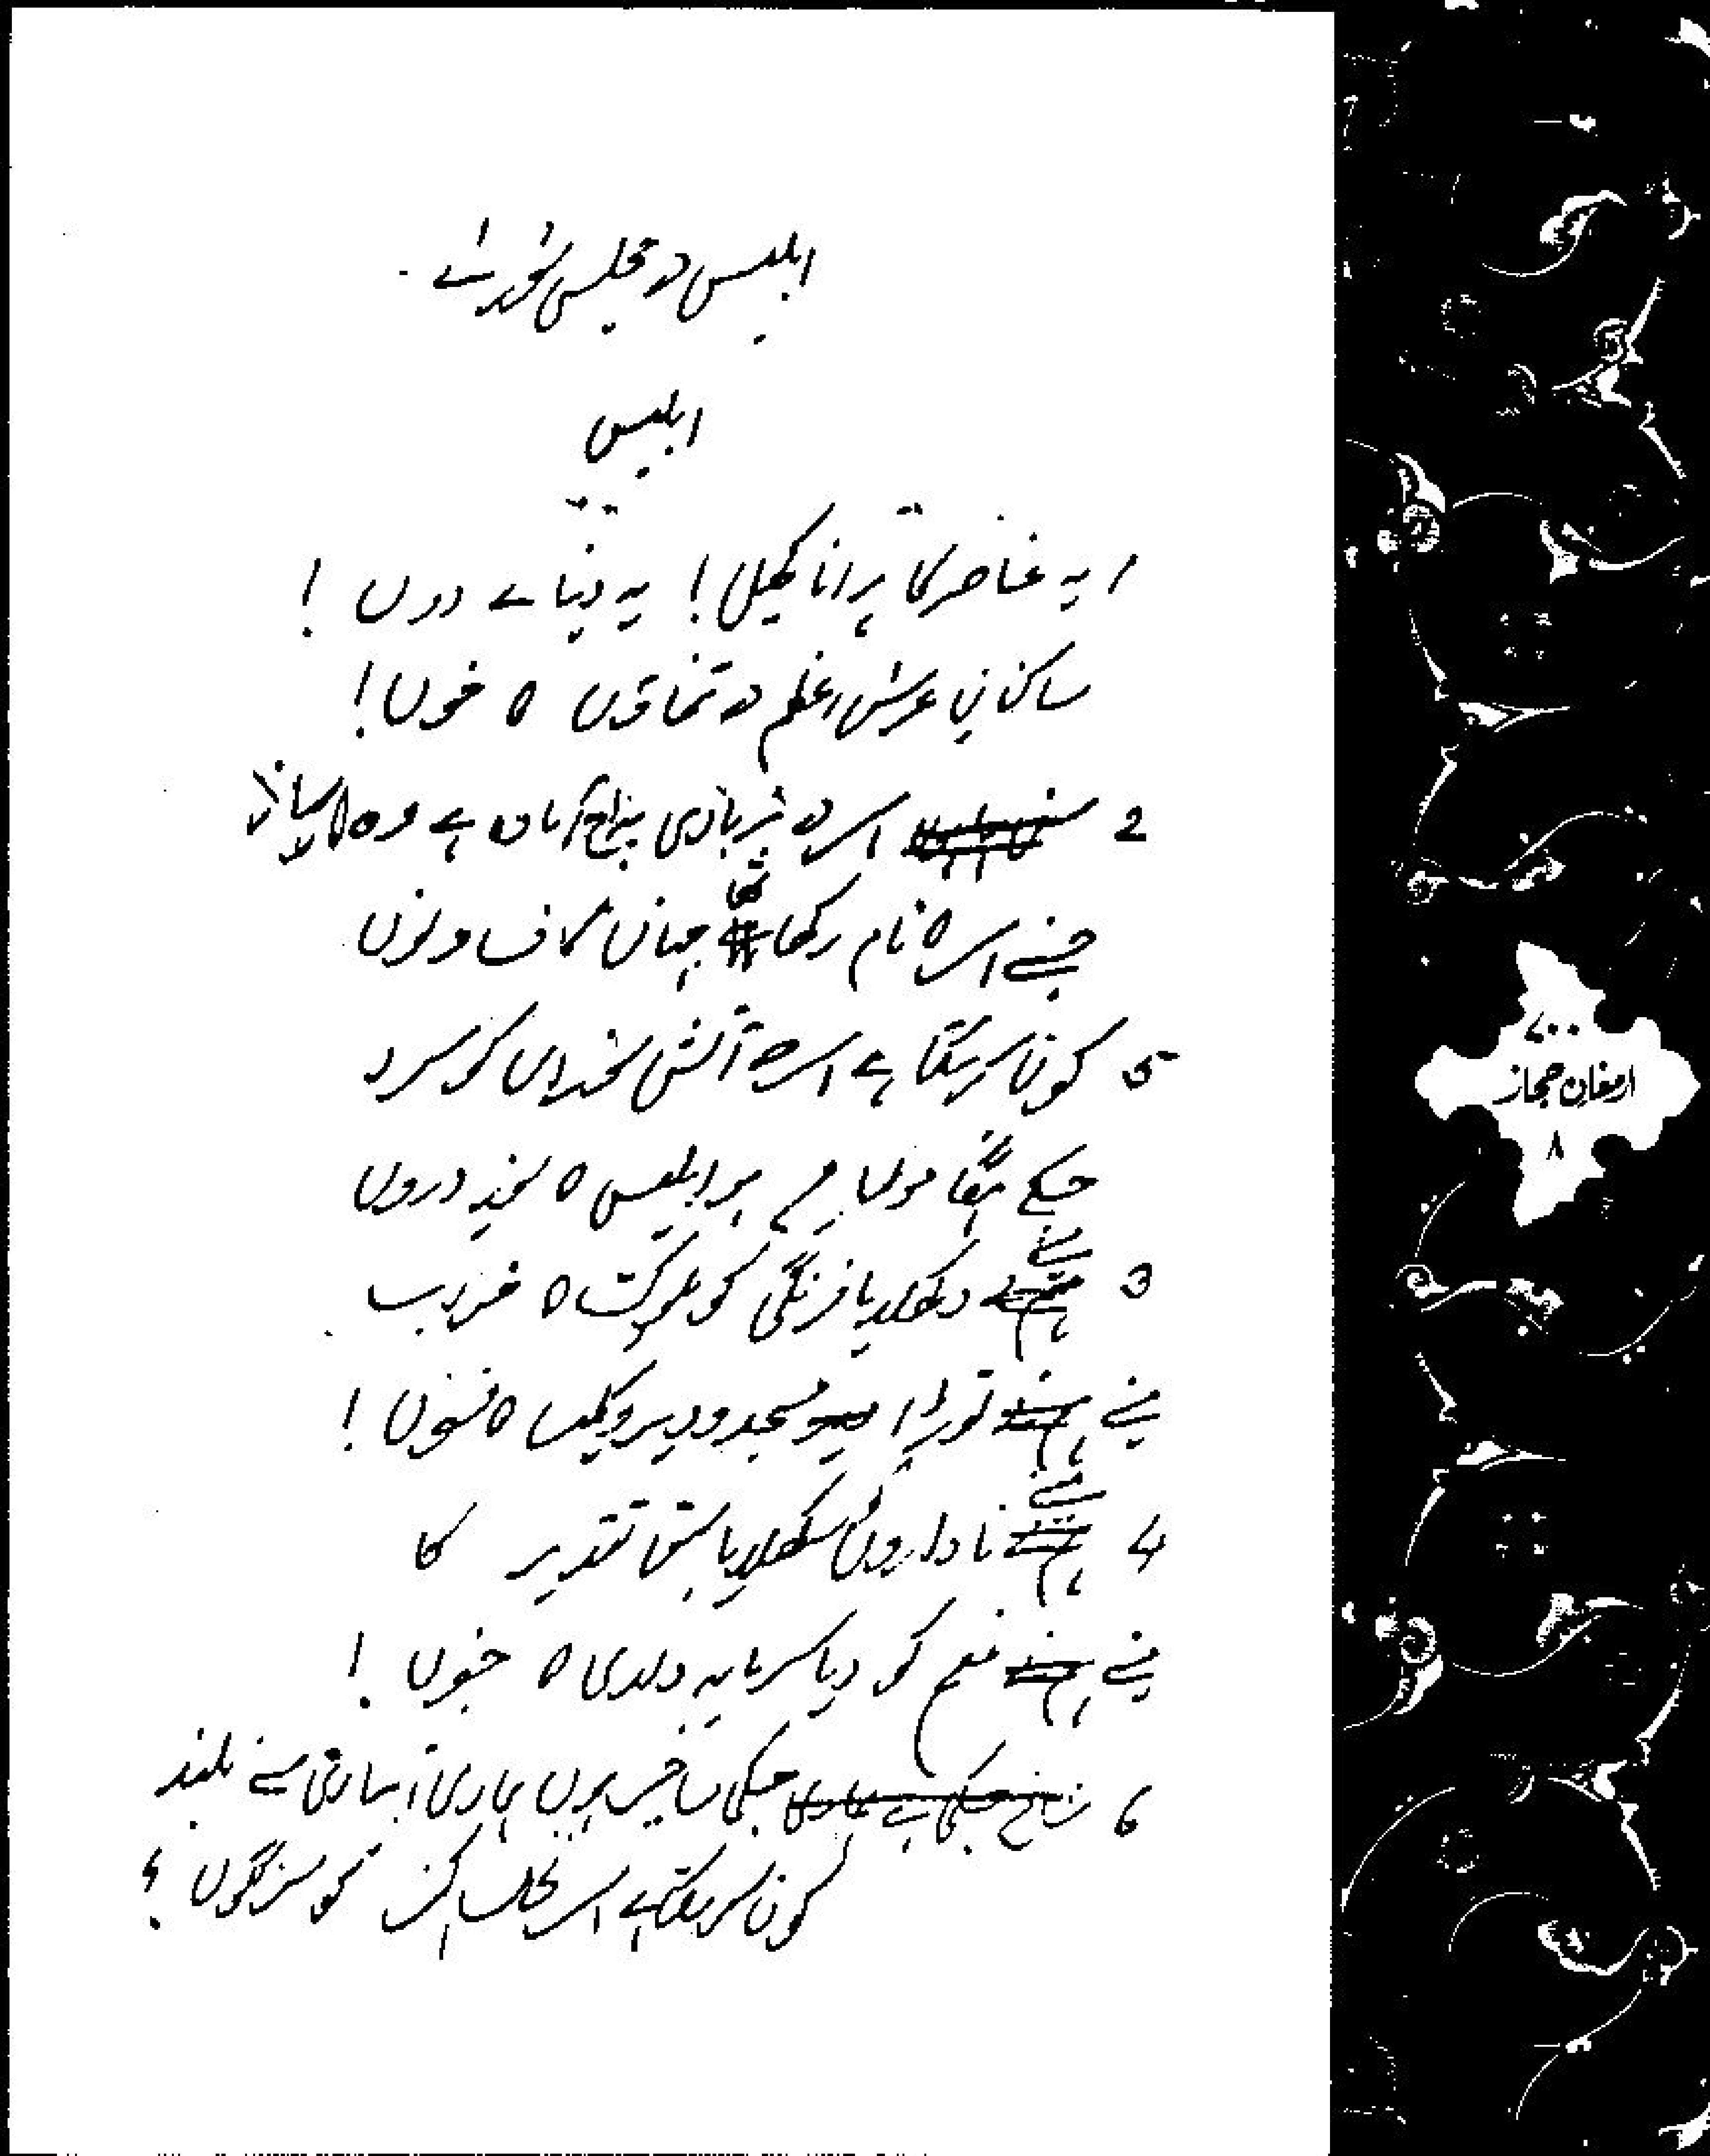 ابلیس کی مجلس شوریٰ
ابلیس
1 یہ عناصر کا پرانا کھیل! یہ دنیائے دوں!
ساکنانِ عرش اعظم کی تمناؤں کا خوں!
2 اسکی بربادی پہ آج آمادہ ہے وہ کارساز
جسنے اسکا نام رکھا تھا جہان کاف و نوں
5 کون کرسکتا ہے اسکی آتش سوزاں کو سرد
جسکے ہنگاموں میں ہو ابلیس کا سوز دروں
3 میں نے دکھلایا فرنگی کو ملوکیت کا خواب
مینے توڑا مسجد و دیر و کلیسا کا فسوں!
4 میں نے ناداروں کو سکھلایا سبق تقدیر کا
مینے منعم کو دیا سرمایہ داری کا جنوں!
6 جسکی شاخیں ہوں ہماری آبیاری سے بلند
کون کرسکتا ہے اس نخل کہن کو سرنگوں؟
۷۰۰
ارمغانِ حجاز
۸